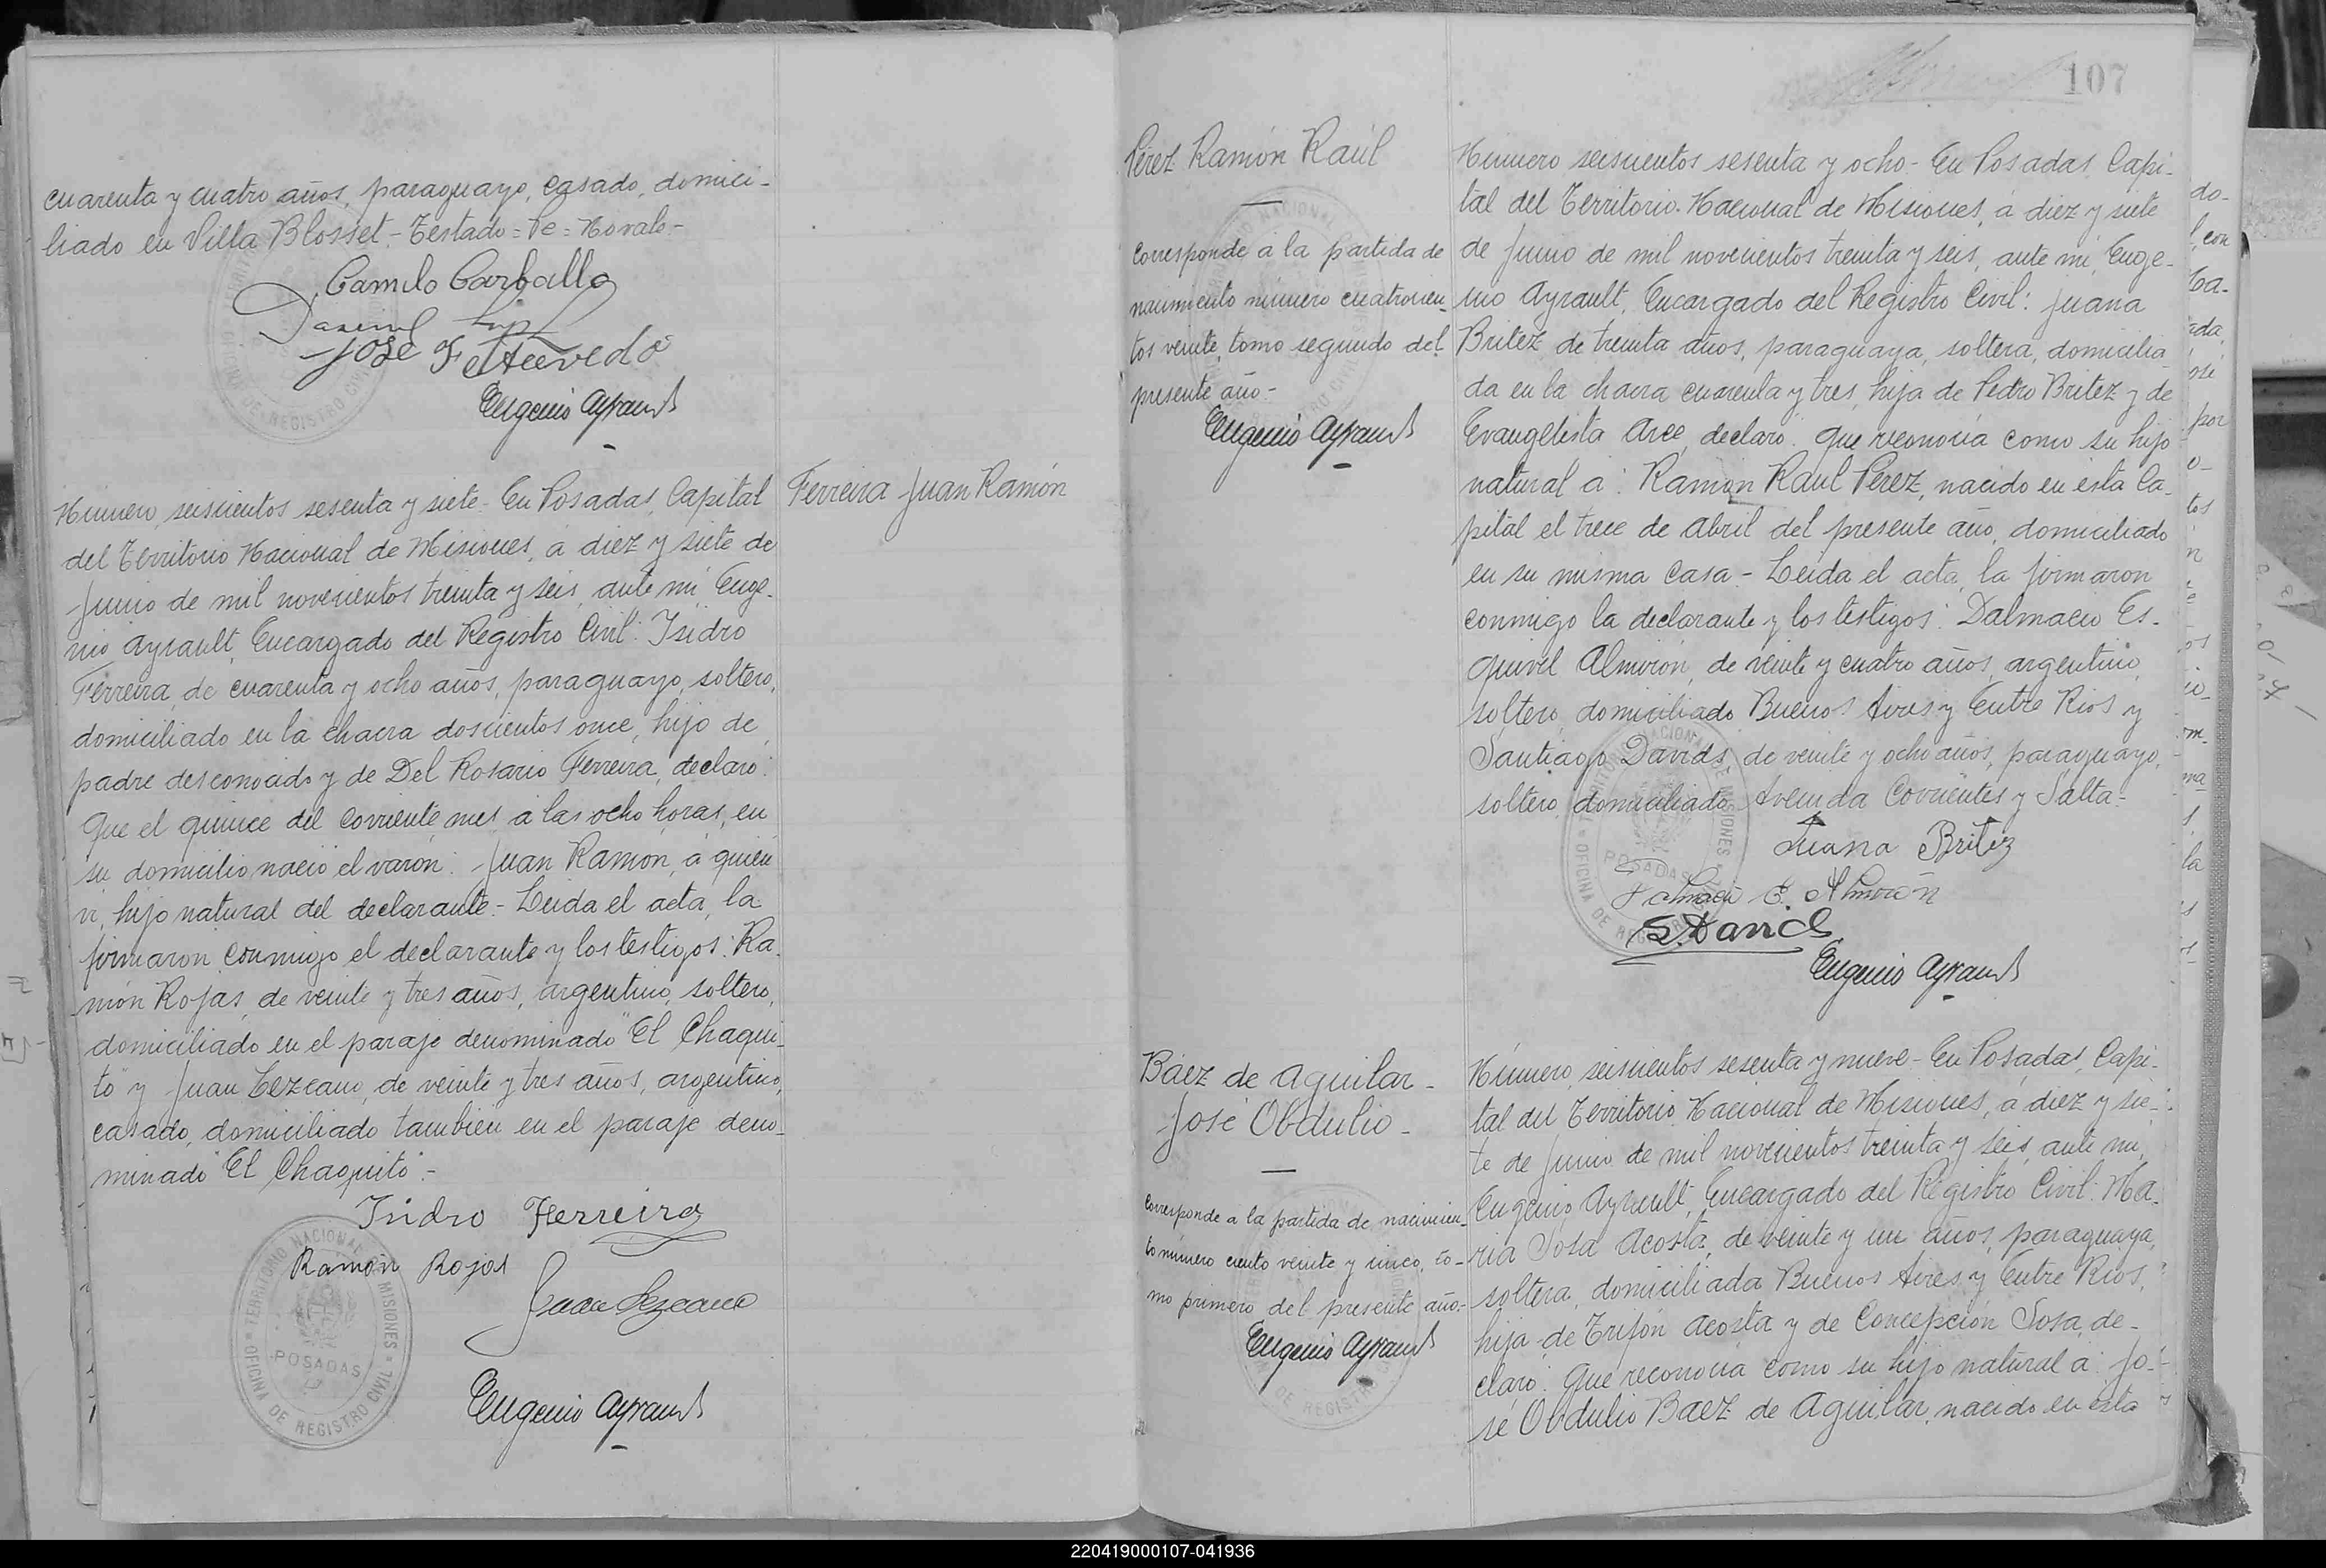 cuarenta y cuatro años, paraguayo, casado, domici-
liado en Villa Blosset - Testado = Pe = No vale -
Camilo Carballo
José F Acevedo
Eugenio Ayrault
Número seiscientos sesenta y siete - En Posadas, Capital
del Territorio Nacional de Misiones, a diez y siete de
Junio de mil novecientos treinta y seis, ante mí, Euge-
nio Ayrault, Encargado del Registro Civil: Isidro
Ferreira, de cuarenta y ocho años, paraguayo, soltero,
domiciliado en la chacra doscientos once, hijo de
padre desconocido y de Del Rosario Ferreira, declaró:
Que el quince del corriente mes a las ocho horas, en
su domicilio nació el varón: Juan Ramón, a quien
vi, hijo natural del declarante - Leida el acta, la
firmaron conmigo el declarante y los testigos: Ra-
món Rojas, de veinte y tres años, argentino, soltero,
domiciliado en el paraje denominado "El Chaqui-
to" y Juan Lezcano, de veinte y tres años, argentino,
casado, domiciliado también en el paraje deno-
minado "El Chaquito" -
Isidro Ferreira
Ramón Rojas
Juan Lezcano
Eugenio Ayrault
TERRITORIO NACIONAL DE MISIONES
POSADAS
OFICINA DE REGISTRO CIVIL
Ferreira Juan Ramón
107
Pérez Ramón Raúl
Corresponde a la partida de
nacimiento número cuatrocien-
tos veinte, tomo segundo del
presente año -
Eugenio Ayrault
Número seiscientos sesenta y ocho - En Posadas, Capi-
tal del Territorio Nacional de Misiones, a diez y siete
de Junio de mil novecientos treinta y seis, ante mí, Euge-
nio Ayrault, Encargado del Registro Civil: Juana
Britez, de treinta años, paraguaya, soltera, domicilia
da en la chacra cuarenta y tres, hija de Pedro Britez y de
Evangelista Arce, declaró: Que reconocía como su hijo
natural a: Ramón Raúl Pérez, nacido en esta Ca-
pital el trece de Abril del presente año, domiciliado
en su misma casa - Leida el acta, la firmaron
conmigo la declarante y los testigos: Dalmacio Es-
quivel Almirón, de veinte y cuatro años, argentino,
soltero, domiciliado Buenos Aires y Entre Rios y
Santiago Davids, de veinte y ocho años, paraguayo,
soltero, domiciliado Avenida Corrientes y Salta -
Juana Britez
Dalmacio E. Almirón
S. David
Eugenio Ayrault
Báez de Aguilar -
José Obdulio -
Corresponde a la partida de nacimien-
to número ciento veinte y cinco, to-
mo primero del presente año -
Eugenio Ayrault
Número seiscientos sesenta y nueve - En Posadas, Capi-
tal del Territorio Nacional de Misiones, a diez y sie-
te de Junio de mil novecientos treinta y seis, ante mí,
Eugenio Ayrault, Encargado del Registro Civil: Ma-
ria Sosa Acosta, de veinte y un años, paraguaya,
soltera, domiciliada Buenos Aires y Entre Rios,
hija de Trifón Acosta y de Concepción Sosa, de-
claró: Que reconocía como su hijo natural a: Jo-
sé Obdulio Báez de Aguilar, nacido en esta
220419000107-041936